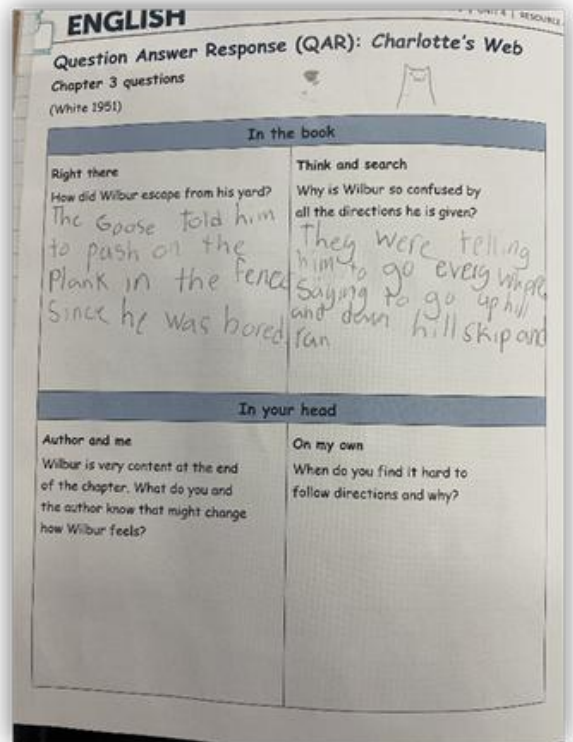 ENGLISH
UNIT 4 | RESOURCE
Question Answer Response (QAR): Charlotte's Web
Chapter 3 questions
(White 1951)
In the book
Right there
How did Wilbur escape from his yard?
The Goose told him
to push on the
Plank in the fence
Since he was bored
Think and search
Why is Wilbur so confused by
all the directions he is given?
They were telling
him to go every where
Saying to go up hill
and down hill skip and
ran
In your head
Author and me
Wilbur is very content at the end
of the chapter. What do you and
the author know that might change
how Wilbur feels?
On my own
When do you find it hard to
follow directions and why?